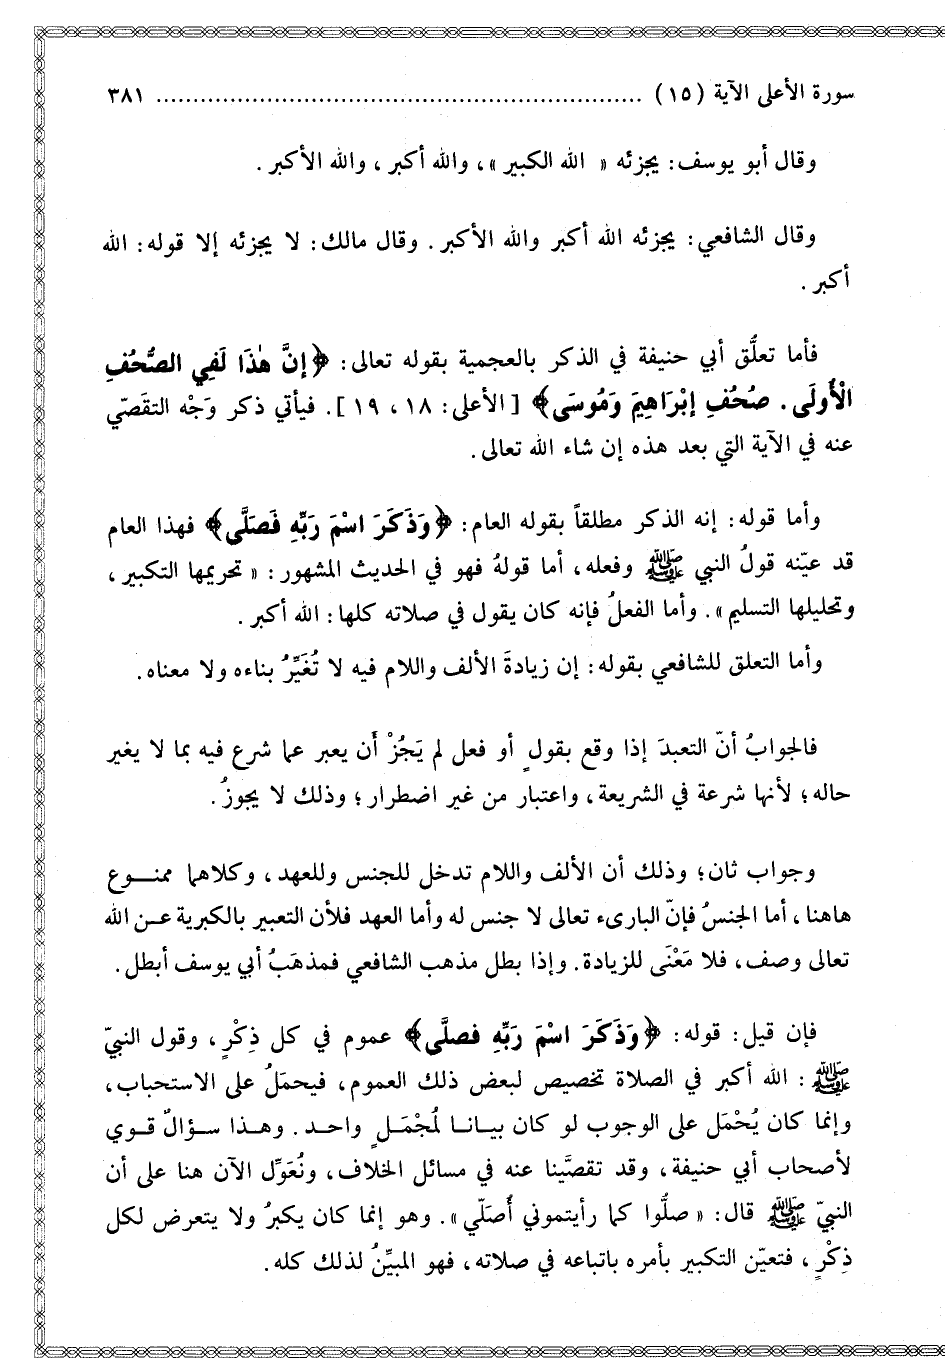 سورة الأعلى الآية (١٥) ................................................................ ٣٨١
وقال أبو يوسف: يجزئه « الله الكبير »، والله أكبر، والله الأكبر.
وقال الشافعي: يجزئه الله أكبر والله الأكبر. وقال مالك: لا يجزئه إلا قوله: الله
أكبر.
فأما تعلُّق أبي حنيفة في الذكر بالعجمية بقوله تعالى: ﴿إِنَّ هٰذَا لَفِي الصُّحُفِ
الْأُولَى. صُحُفِ إبْرَاهِيمَ وَمُوسَى﴾ [الأعلى: ١٨، ١٩]. فيأتي ذكر وَجْه التقَصّي
عنه في الآية التي بعد هذه إن شاء الله تعالى.
وأما قوله: إنه الذكر مطلقاً بقوله العام: ﴿وَذَكَرَ اسْمَ رَبِّهِ فَصَلَّى﴾ فهذا العام
قد عيّنه قولُ النبي ﷺ وفعله، أما قولهُ فهو في الحديث المشهور: « تحريمها التكبير،
وتحليلها التسليم». وأما الفعلُ فإنه كان يقول في صلاته كلها: الله أكبر.
وأما التعلق للشافعي بقوله: إن زيادةَ الألف واللام فيه لا تُغَيِّرُ بناءه ولا معناه.
فالجوابُ أنّ التعبدَ إذا وقع بقولٍ أو فعل لم يَجُزْ أن يعبر عما شرع فيه بما لا يغير
حاله؛ لأنها شرعة في الشريعة، واعتبار من غير اضطرار؛ وذلك لا يجوزُ.
وجواب ثان؛ وذلك أن الألف واللام تدخل للجنس وللعهد، وكلاهما ممنـــوع
هاهنا، أما الجنسُ فإنّ البارىء تعالى لا جنس له وأما العهد فلأن التعبير بالكبرية عـن الله
تعالى وصف، فلا مَعْنَى للزيادة. وإذا بطل مذهب الشافعي فمذهَبُ أبي يوسف أبطل.
فإن قيل: قوله: ﴿وَذَكَرَ اسْمَ رَبِّهِ فصلَّى﴾ عموم في كل ذِكْرٍ، وقول النبيّ
ﷺ: الله أكبر في الصلاة تخصيص لبعض ذلك العموم، فيحملُ على الاستحباب،
وإنما كان يُحْمَل على الوجوب لو كان بيـانـا لمُجْمَـلٍ واحـد. وهـذا سـؤالٌ قـوي
لأصحاب أبي حنيفة، وقد تقصَّينا عنه في مسائل الخلاف، ونُعَوِّل الآن هنا على أن
النبيّ ﷺ قال: « صلُّوا كما رأيتموني أُصَلّي». وهو إنما كان يكبرُ ولا يتعرض لكل
ذِكْرٍ، فتعيّن التكبير بأمره باتباعه في صلاته، فهو المبيِّنُ لذلك كله.